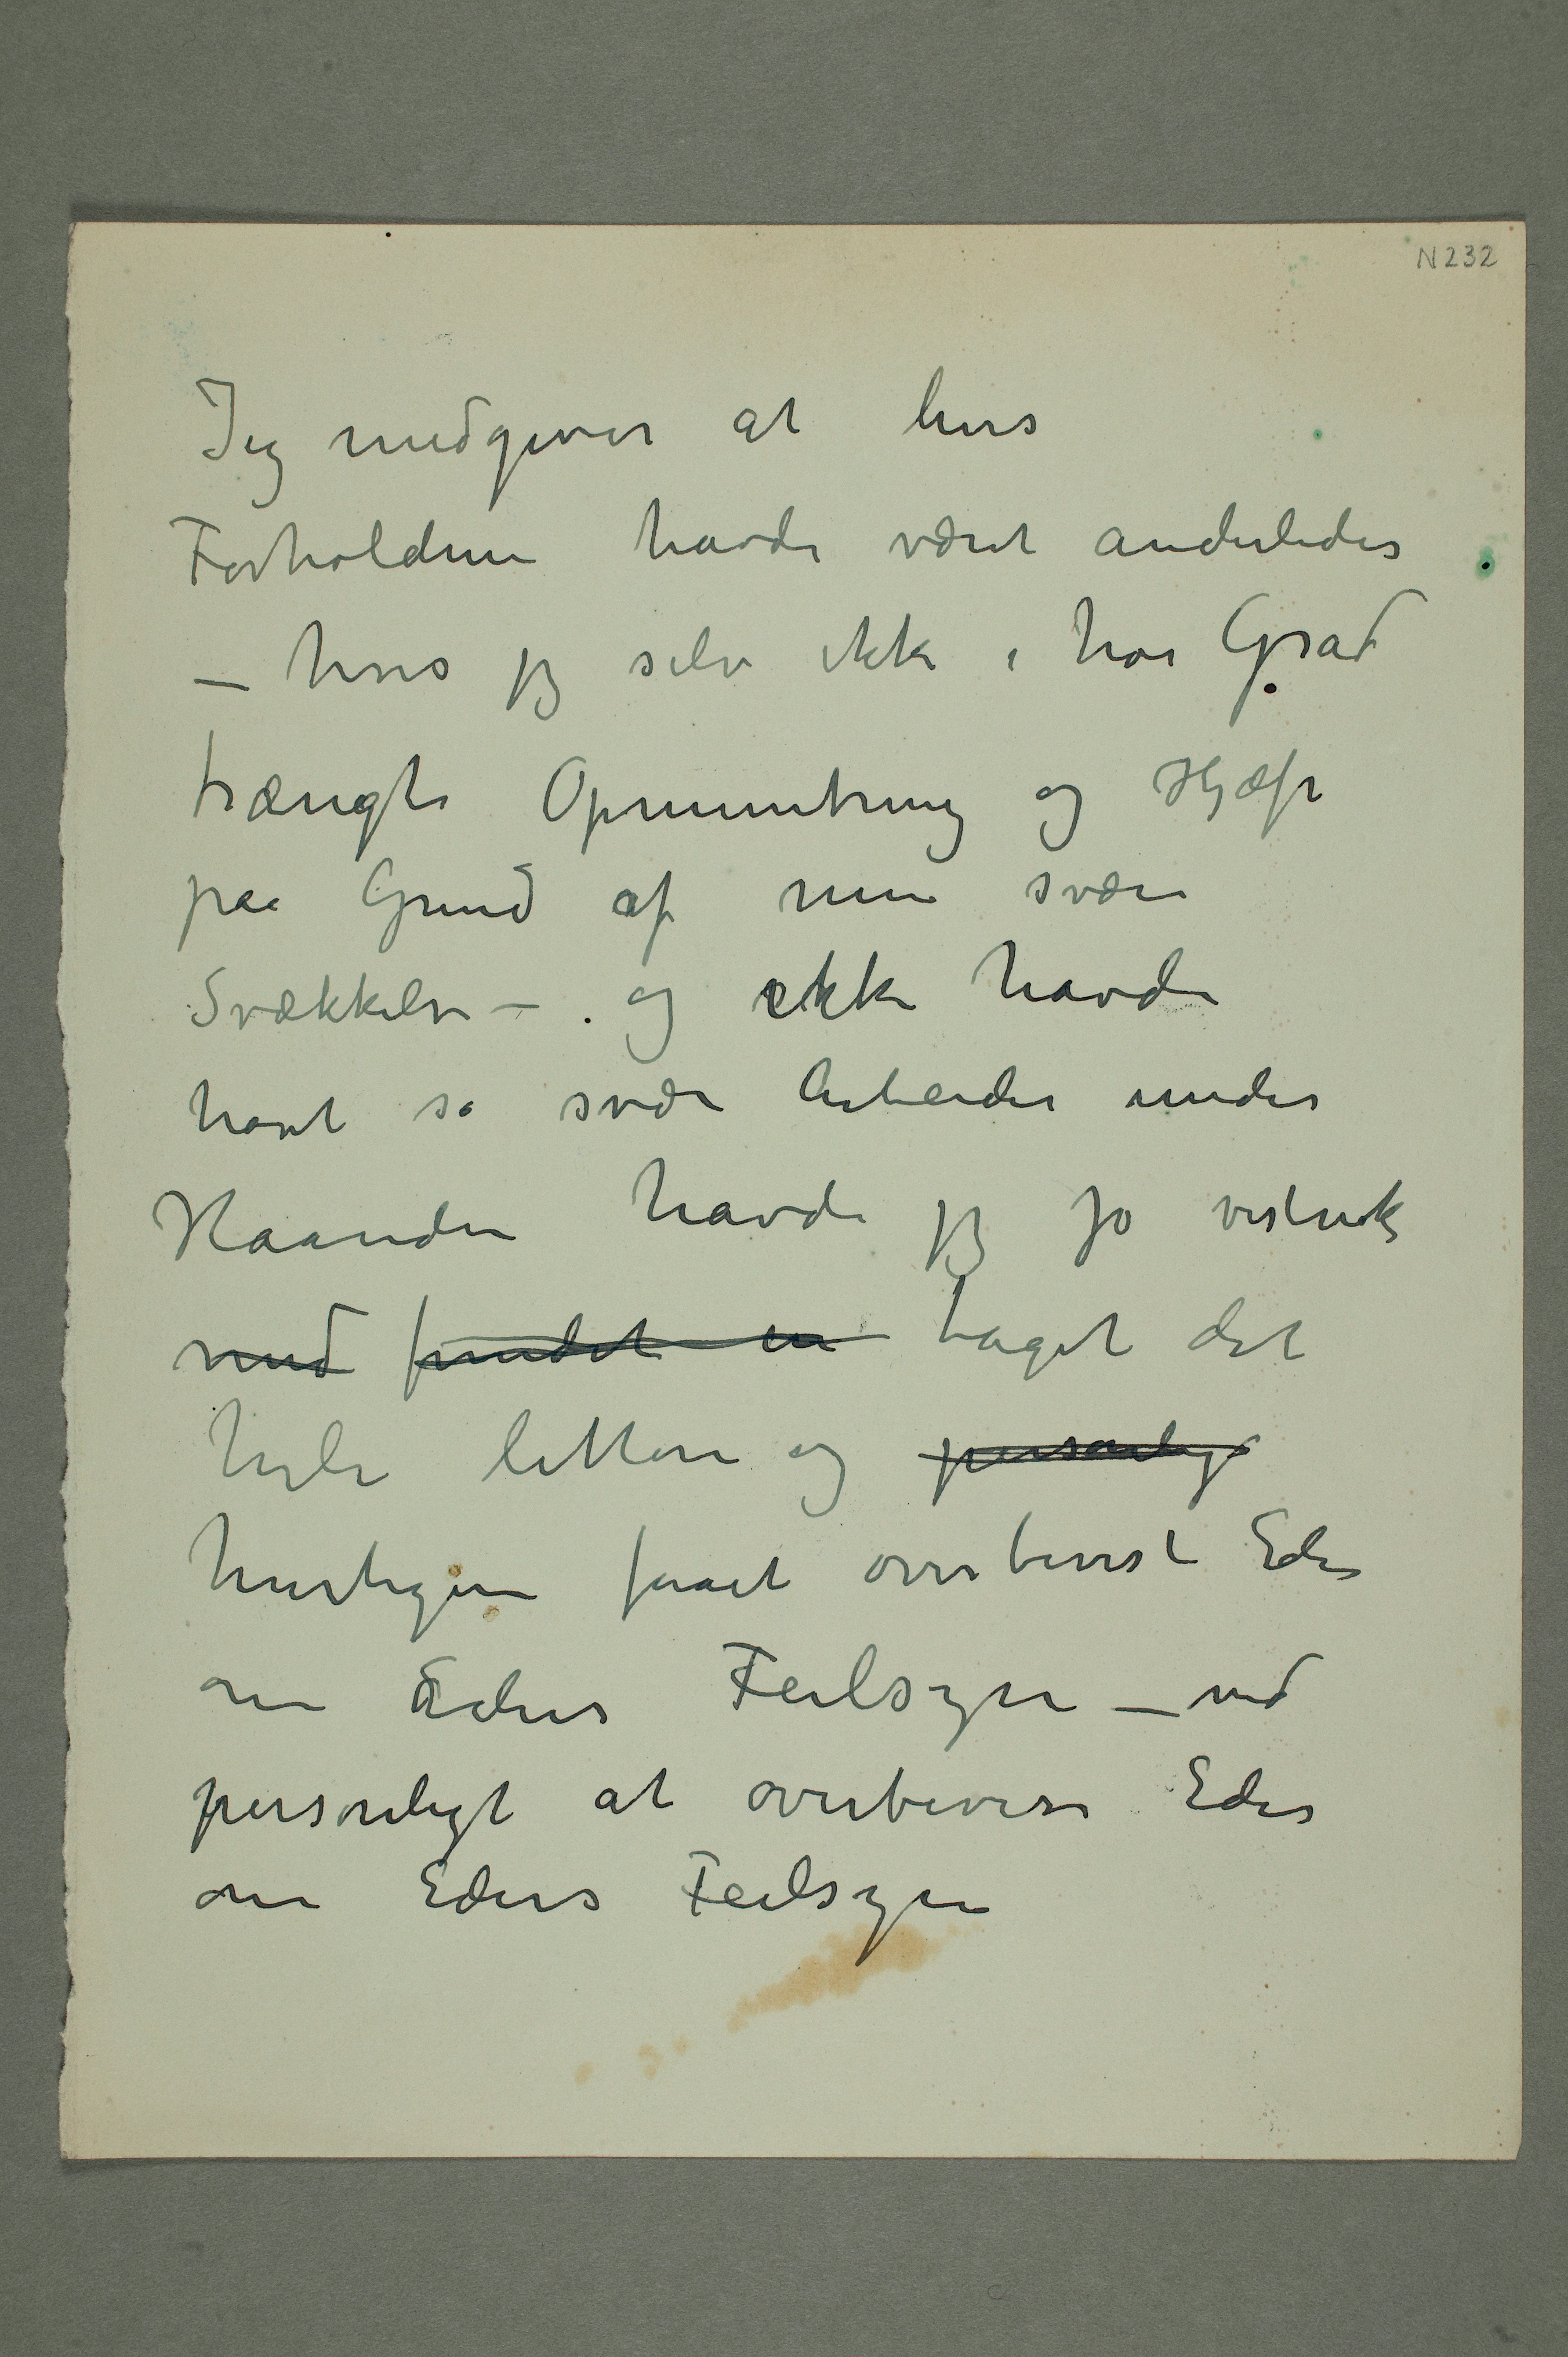 N 232
Jeg medgiver at hvis
Forholdene havde været anderledes
– hvis jeg selv ikke i høi Grad
trængte Opmuntring og Hjælp
paa Grund af min svære
Svækkelse – . og ikke havde
havt så svære Arbeider under
Haanden havde jeg jo vistnok
med fundet en taget det
hele lettere og personlig
hurtigere faaet overbevist Eder
om Eders Feilsyn – ved
personligt at overbevise Eder
om Eders Feilsyn